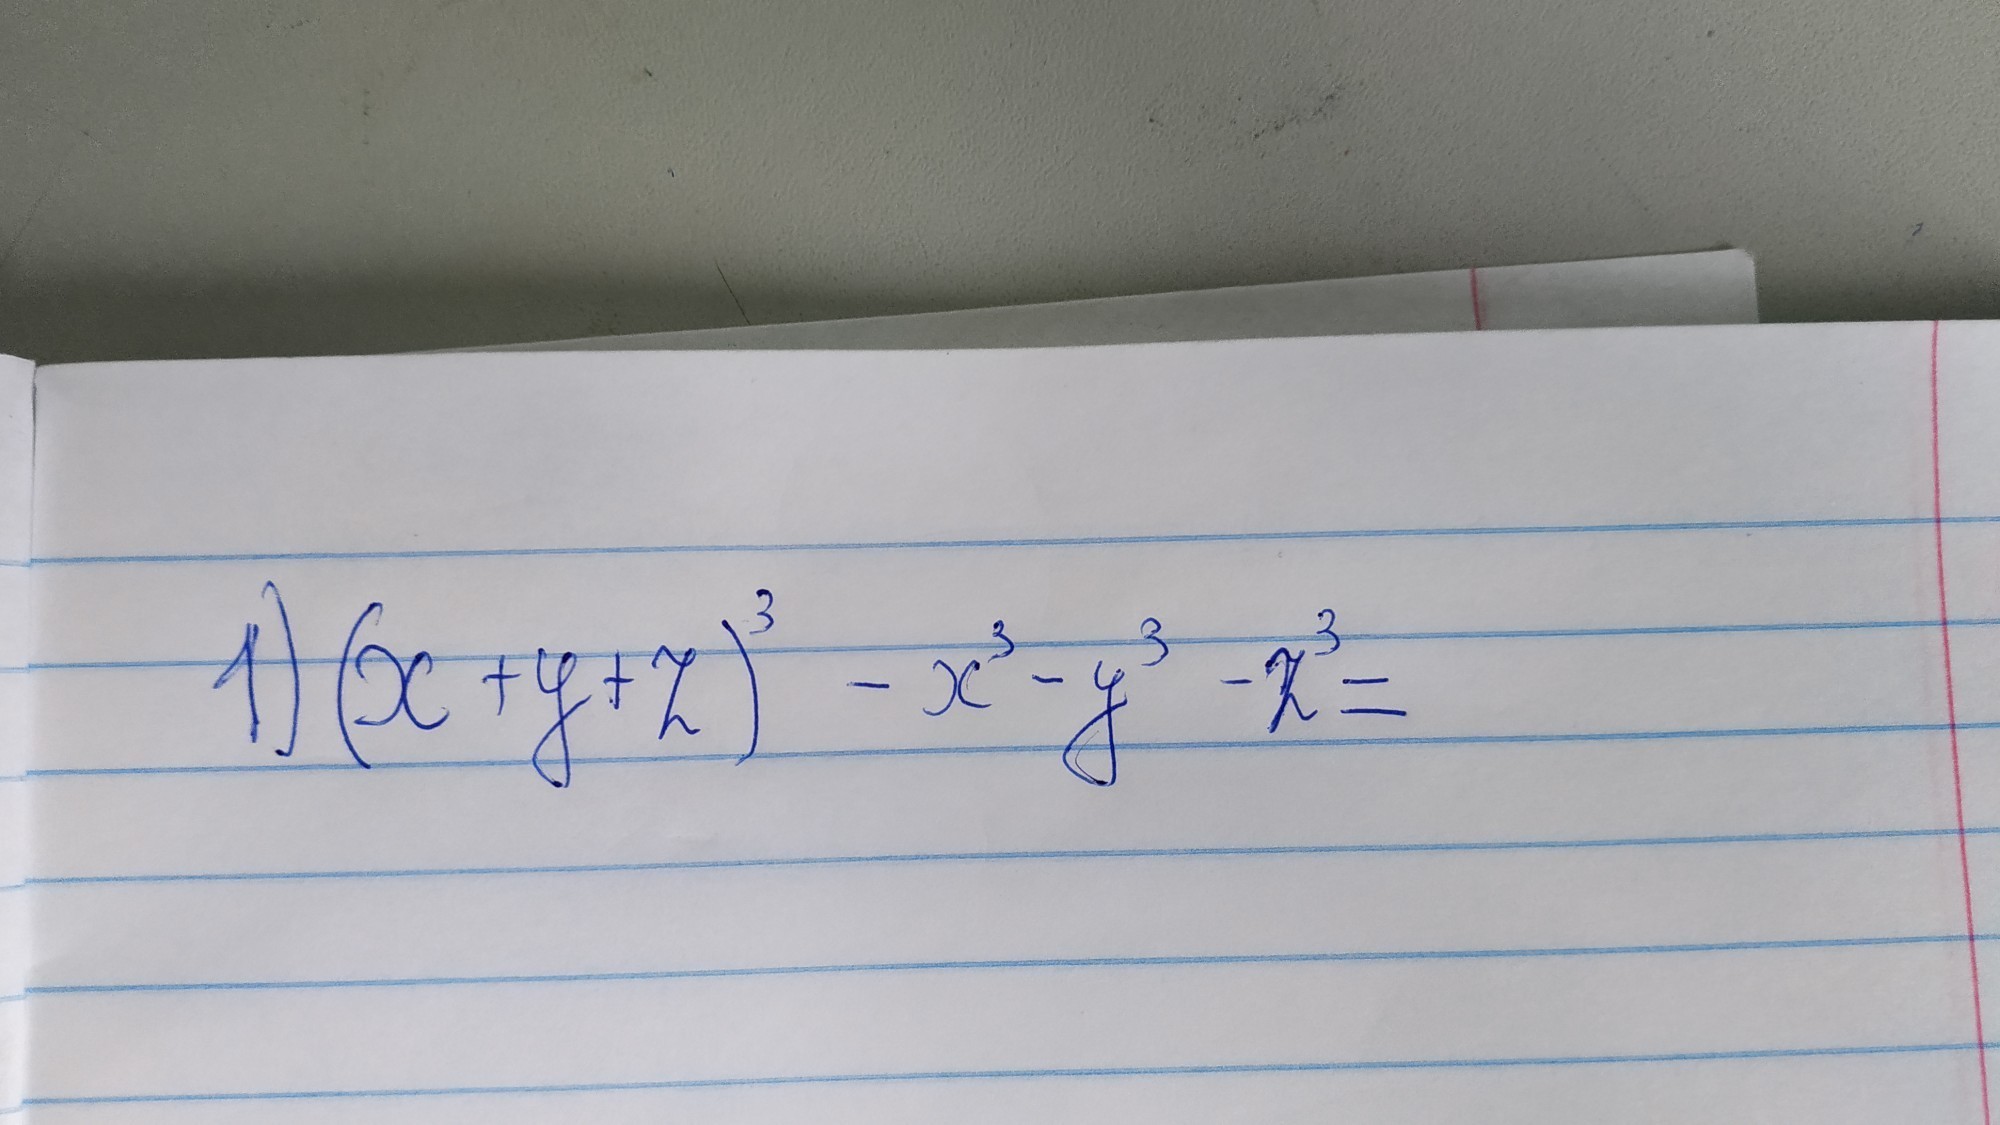 1) (x + y + z)³ - x³ - y³ - z³ =